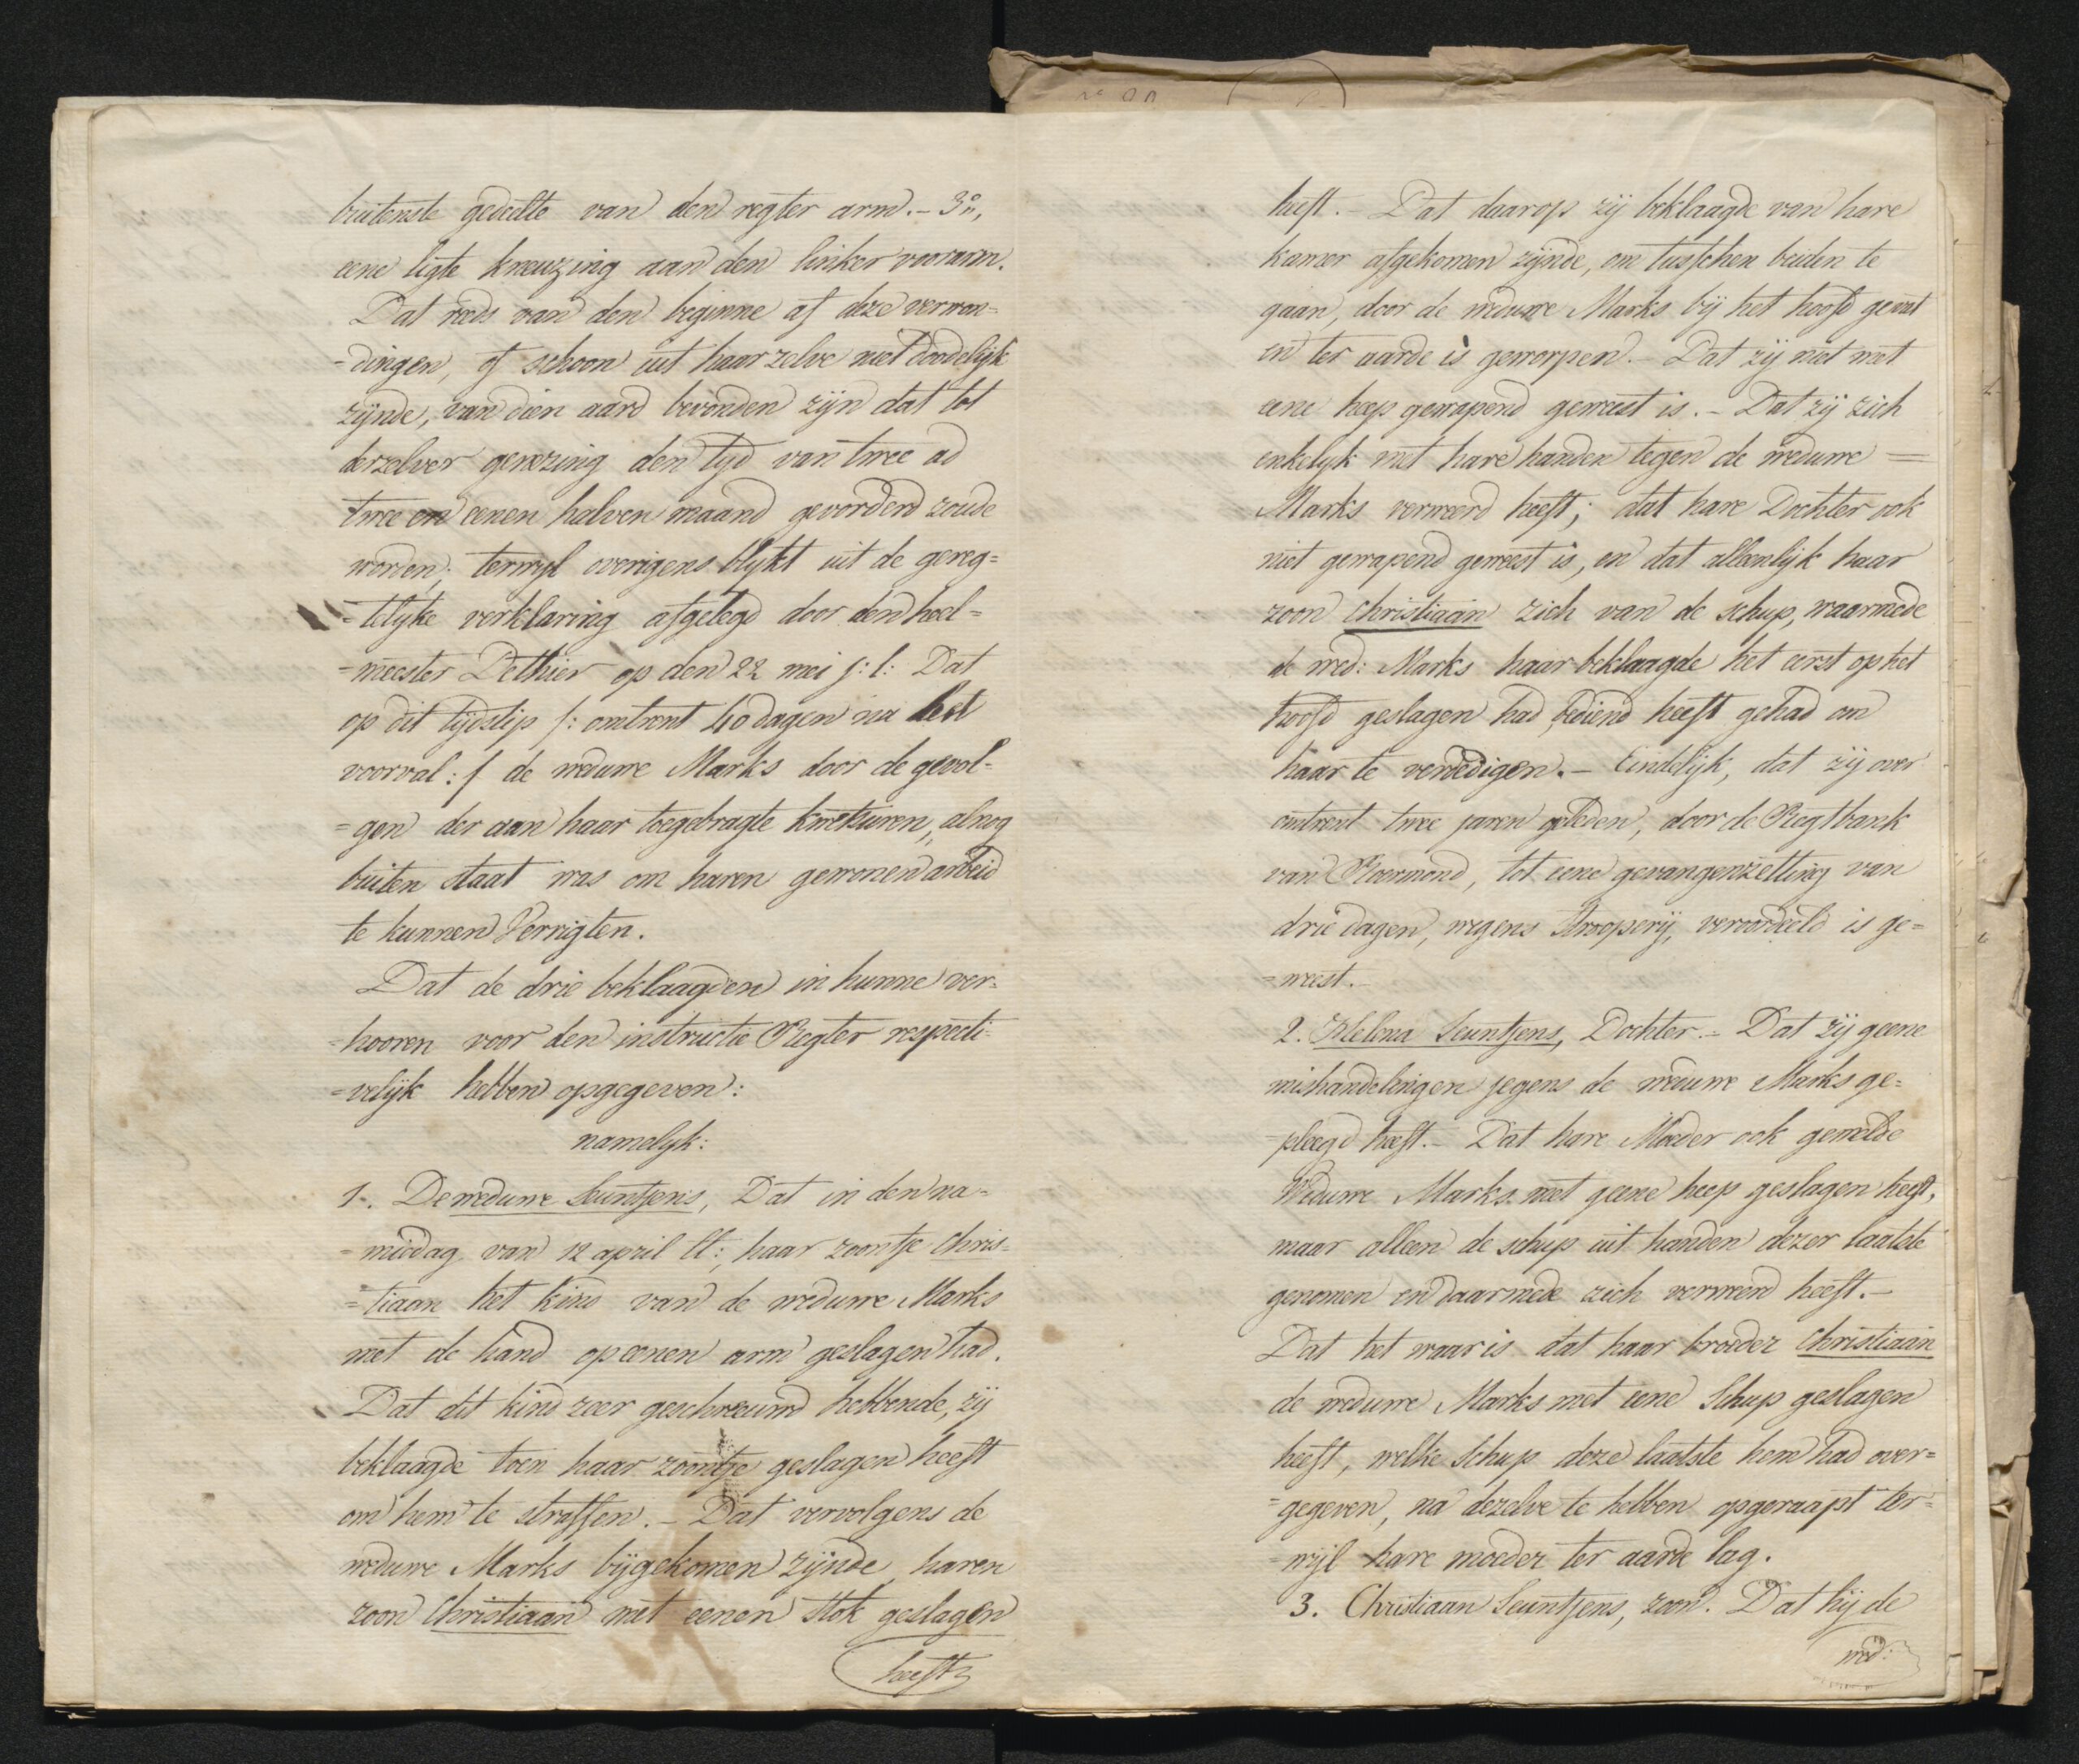 buitenste gedeelte van den regter arm. – 3º,
eene ligte kneuzing aan den linker voorarm.
Dat reeds van den beginne af deze verwon=
=dingen, of schoon uit haar zelve niet doodelijk
zijnde, van dien aard bevonden zijn dat tot
derzelver genezing den tijd van twee ad
twee en eenen halven maand gevorderd zoude
worden; terwyl overigens blykt uit de gereg=
=telyke verklaring afgelegd door den heel=
=meester Dethier op den 22 mei j: l: Dat
op dit tijdstip /: omtrent 40 dagen na het
voorval :/ de weduwe Marks door de gevol=
=gen der aan haar toegebragte kwetsuren, alnog
buiten staat was om haren gewonen arbeid
te kunnen Verrigten.
Dat de drie beklaagden in hunne ver=
=hooren voor den instructie Regter respecti=
=velijk hebben opgegeven:
namelyk:
1. De weduwe Seuntjens, Dat in den na=
=middag van 12 april lt:, haar zoontje Chris=
=tiaan het kind van de weduwe Marks
met de hand op eenen arm geslagen had.
Dat dit kind zeer geschreeuwd hebbende, zij
beklaagde toen haar zoontje geslagen heeft
om hem te straffen. – Dat vervolgens de
weduwe Marks bijgekomen zijnde haren
zoon Christiaan met eenen Stok geslagen
heeft
heeft. – Dat daarop zij beklaagde van hare
kamer afgekomen zijnde, om tusschen beiden te
gaan, door de weduwe Marks bij het hoofd gevat
en ter aarde is geworpen. – Dat zij niet met
eene heep gewapend geweest is. – Dat zij zich
enkelyk met hare handen tegen de weduwe =
Marks verweerd heeft; dat hare Dochter ook
niet gewapend geweest is, en dat alleenlijk haar
zoon Christiaan zich van de schup, waarmede
de wed: Marks haar beklaagde het eerst op het
hoofd geslagen had, bediend heeft gehad om
haar te verdedigen. – Eindelijk, dat zij over
omtrent twee jaren geleden, door de Regtbank
van Roermond, tot eene gevangenzetting van
drie dagen, wegens Strooperij, veroordeeld is ge=
=weest.
2. Helena Seuntjens, Dochter. – Dat zij geene
mishandelingen jegens de weduwe Marks ge=
pleegd heeft. – Dat hare Moeder ook gemelde
Weduwe Marks met geene heep geslagen heeft,
maar alleen de schup uit handen dezer laatste
genomen en daarmede zich verweerd heeft. –
Dat het waar is dat haar broeder Christiaan
de weduwe Marks met eene Schup geslagen
heeft, welke Schup deze laatste hem had over=
=gegeven, na dezelve te hebben opgeraapt ter=
=wijl hare moeder ter aarde lag.
3. Christiaan Seuntjens, zoon. Dat hij de
wed: